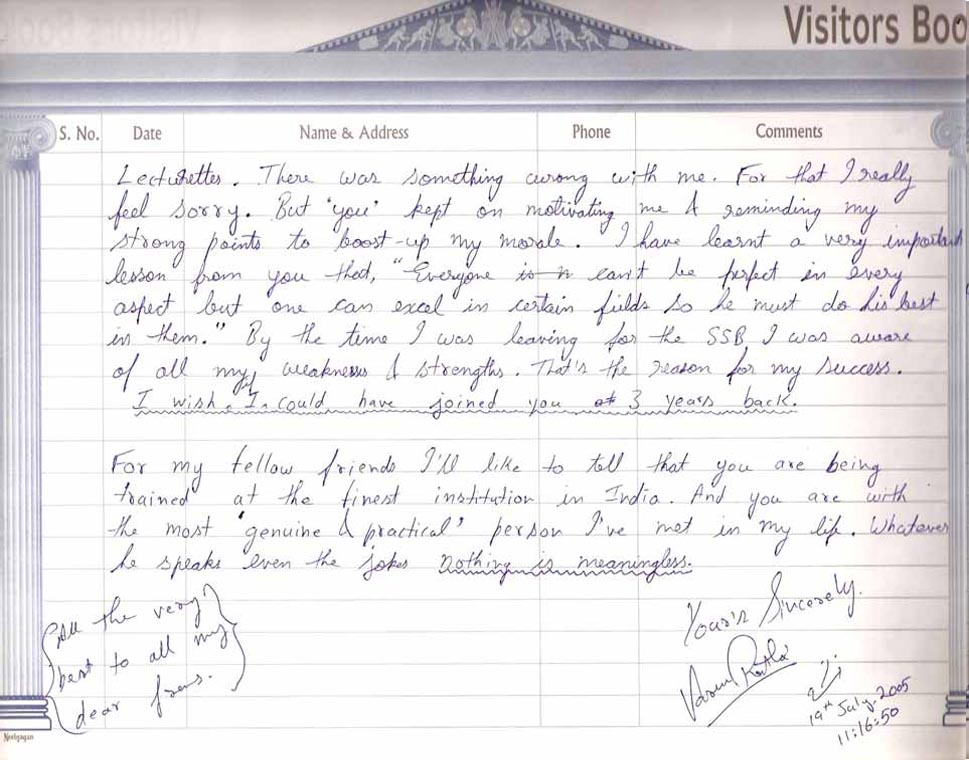 Visitors Boo
S. No. Date Name & Address Phone Comments
Lecturettes. There was something wrong with me. For that I really
feel sorry. But 'you' kept on motivating me & reminding my
strong points to boost-up my morale. I have learnt a very important
lesson from you that, "Everyone is n can't be perfect in every
aspect but one can excel in certain fields so he must do his best
in them." By the time I was leaving for the SSB, I was aware
of all my weakness & strengths. That's the reason for my success.
I wish, I could have joined you at 3 years back.
For my fellow friends I'll like to tell that you are being
trained at the finest institution in India. And you are with
the most 'genuine & practical' person I've met in my life. Whatever
he speaks even the jokes nothing is meaningless.
All the very
best to all my
dear frens.
Your's Sincerely.
Varun
19th July. 2005
11:16:50
Neelgagan